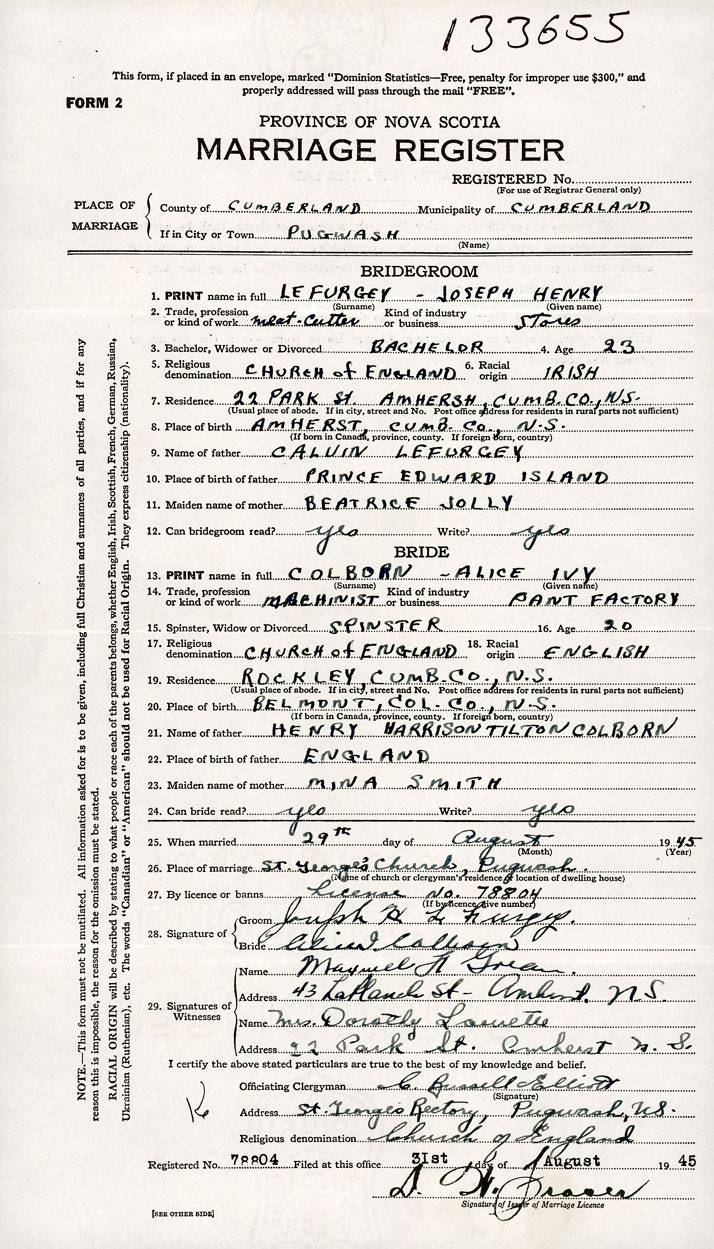 133655
This form, if placed in an envelope, marked "Dominion Statistics—Free, penalty for improper use $300," and
properly addressed will pass through the mail "FREE".
FORM 2
PROVINCE OF NOVA SCOTIA
MARRIAGE REGISTER
REGISTERED No.
(For use of Registrar General only)
PLACE OF MARRIAGE
County of CUMBERLAND Municipality of CUMBERLAND
If in City or Town PUGWASH
(Name)
BRIDEGROOM
1. PRINT name in full LEFURGEY - JOSEPH HENRY
(Surname) (Given name)
2. Trade, profession or kind of work meat-cutter Kind of industry or business Stores
3. Bachelor, Widower or Divorced BACHELOR 4. Age 23
5. Religious denomination CHURCH of ENGLAND 6. Racial origin IRISH
7. Residence 22 PARK St. AMHERSH, CUMB. CO., N.S.
(Usual place of abode. If in city, street and No. Post office address for residents in rural parts not sufficient)
8. Place of birth AMHERST, CUMB. Co., N.S.
(If born in Canada, province, county. If foreign born, country)
9. Name of father CALVIN LEFURGEY
10. Place of birth of father PRINCE EDWARD ISLAND
11. Maiden name of mother BEATRICE JOLLY
12. Can bridegroom read? yes Write? yes
BRIDE
13. PRINT name in full COLBORN - ALICE IVY
(Surname) (Given name)
14. Trade, profession or kind of work MACHINIST Kind of industry or business PANT FACTORY
15. Spinster, Widow or Divorced SPINSTER 16. Age 20
17. Religious denomination CHURCH of ENGLAND 18. Racial origin ENGLISH
19. Residence ROCKLEY, CUMB. CO., N.S.
(Usual place of abode. If in city, street and No. Post office address for residents in rural parts not sufficient)
20. Place of birth BELMONT, COL. CO., N.S.
(If born in Canada, province, county. If foreign born, country)
21. Name of father HENRY HARRISON TILTON COLBORN
22. Place of birth of father ENGLAND
23. Maiden name of mother MINA SMITH
24. Can bride read? yes Write? yes
25. When married 29th day of August 1945
(Month) (Year)
26. Place of marriage St. George's Church, Pugwash.
(Name of church or clergyman's residence or location of dwelling house)
27. By licence or banns License No. 78804
(If by licence, give number)
28. Signature of
Groom Joseph H. LeFurgey.
Bride
29. Signatures of Witnesses
Name Maxwell A Green.
Address 43 St - Amherst, N.S.
Name Mrs. Dorothy
Address 22 Park St. Amherst N. S.
I certify the above stated particulars are true to the best of my knowledge and belief.
Officiating Clergyman C. Russell Elliott
(Signature)
Address St. George's Rectory, Pugwash, N.S.
Religious denomination Church of England
Registered No. 78804 Filed at this office 31st day of August 1945
D. W. Fraser
Signature of Issuer of Marriage Licence
[SEE OTHER SIDE]
NOTE.—This form must not be mutilated. All information asked for is to be given, including full Christian and surnames of all parties, and if for any
reason this is impossible, the reason for the omission must be stated.
RACIAL ORIGIN will be described by stating to what people or race each of the parents belongs, whether English, Irish, Scottish, French, German, Russian,
Ukrainian (Ruthenian), etc. The words "Canadian" or "American" should not be used for Racial Origin. They express citizenship (nationality).